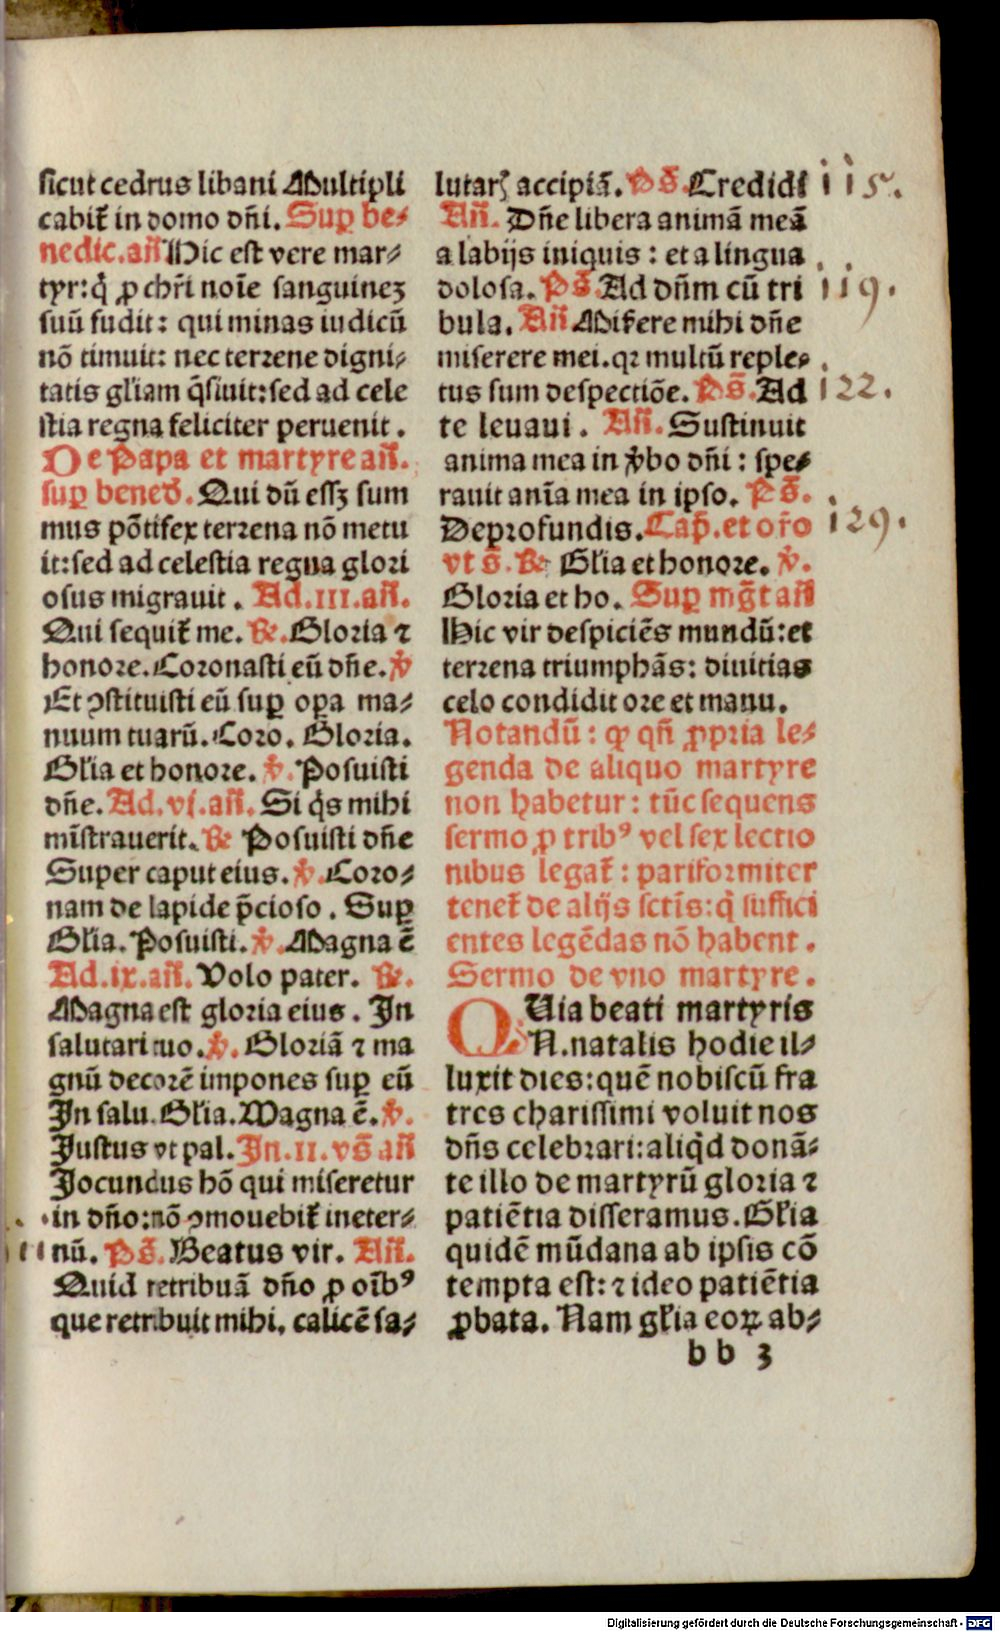 sicut cedrus libani Multipli
cabit᷑ in domo dn̄i. Suꝑ be⸗
nedic. an̄ Hic est vere mar⸗
tyr: q̇ ꝓ chr̄i noīe sanguineꝫ
suū fudit: qui minas iudicū
nō timuit: nec terrene digni⸗
tatis gl̄iam q̄siuit: sed ad cele
stia regna feliciter peruenit.
De Papa et martyre an̄.
suꝑ bened̄. Qui dū essꝫ sum
mus pōtifex terrena nō metu
it: sed ad celestia regna glori
osus migrauit. Ad. III. an̄.
Qui sequit᷑ me. ℟. Gloria ⁊
honore. Coronasti eū dn̄e. ℣
Et ꝯstituisti eū suꝑ oꝑa ma⸗
nuum tuarū. Coro. Gloria.
Gl̄ia et honore. ℣. Posuisti
dn̄e. Ad. vj. an̄. Si q̇s mihi
mīstrauerit. ℟ Posuisti dn̄e
Super caput eius. ℣. Coro⸗
nam de lapide p̄cioso. Suꝑ
Gl̄ia. Posuisti. ℣. Magna ē
Ad. ix. an̄. Volo pater. ℟.
Magna est gloria eius. In
salutari tuo. ℣. Gloriā ⁊ ma
gnū decorē impones suꝑ eū
In salu. Gl̄ia. Magna ē. ℣.
Justus vt pal. In. II. vs̄ an̄
Jocundus hō qui miseretur
in dn̄o: nō ꝯmouebit᷑ ineter⸗
nū. Ps̄. Beatus vir. An̄.
Quid retribuā dn̄o ꝓ oīb⁹
que retribuit mihi. calicē sa⸗
lutarꝭ accipiā. Ps̄. Credidi 115.
An̄. Dn̄e libera animā meā
a labijs iniquis: et a lingua
dolosa. Ps̄. Ad dn̄m cū tri 119.
bula. An̄ Mis̄ere mihi dn̄e
miserere mei. qꝛ multū reple⸗
tus sum despectiōe. Ps̄. Ad 122.
te leuaui. An̄. Sustinuit
anima mea in v̄bo dn̄i: spe⸗
rauit anīa mea in ipso. Ps̄.
De profundis. Cap̄. et or̄o 129.
vt s̄. ℟ Gl̄ia et honore. ℣.
Gloria et ho. Suꝑ mḡt an̄
Hic vir despiciēs mundū: et
terrena triumphās: diuitias
celo condidit ore et manu.
Notandū: ꝙ qn̄ ꝓpria le⸗
genda de aliquo martyre
non habetur: tūc sequens
sermo ꝓ trib⁹ vel sex lectio
nibus legat᷑: pariformiter
tenet᷑ de alijs sctīs: q̇ suffici
entes legēdas nō habent.
Sermo de vno martyre.
QUia beati martyris
N. natalis hodie il⸗
luxit dies: quē nobiscū fra
tres charissimi voluit nos
dn̄s celebrari: aliq̇d donā⸗
te illo de martyrū gloria ⁊
patiētia disseramus. Gl̄ia
quidē mūdana ab ipsis cō
tempta est: ⁊ ideo patiētia
ꝓbata. Nam gl̄ia eoꝝ ab⸗
bb 3
Digitalisierung gefördert durch die Deutsche Forschungsgemeinschaft - DFG